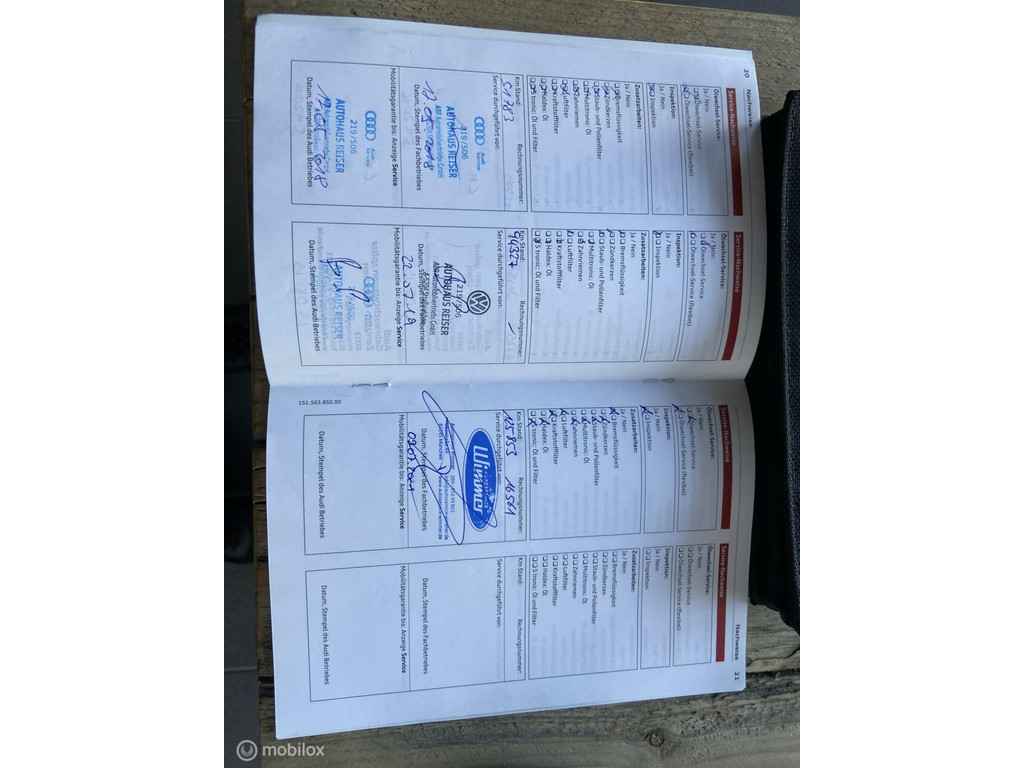 20
Nachweise
Service-Nachweise
Ölwechsel-Service:
Ja / Nein
Ölwechsel-Service
Ölwechsel-Service (flexibel)
Inspektion:
Ja / Nein
Inspektion
Zusatzarbeiten:
Ja / Nein
Bremsflüssigkeit
Zündkerzen
Staub- und Pollenfilter
Multitronic: Öl
Zahnriemen
Luftfilter
Kraftstofffilter
Haldex: Öl
S tronic: Öl und Filter
Km Stand:
Rechnungsnummer:
51783
Service durchgeführt von:
Audi
Service
219/506
AUTOHAUS REISER
17.05.2018
Datum, Stempel des Fachbetriebes
Mobilitätsgarantie bis: Anzeige Service
Audi
Service
219/506
AUTOHAUS REISER
Datum, Stempel des Audi Betriebes
Service-Nachweise
Ölwechsel-Service:
Ja / Nein
Ölwechsel-Service
Ölwechsel-Service (flexibel)
Inspektion:
Ja / Nein
Inspektion
Zusatzarbeiten:
Ja / Nein
Bremsflüssigkeit
Zündkerzen
Staub- und Pollenfilter
Multitronic: Öl
Zahnriemen
Luftfilter
Kraftstofffilter
Haldex: Öl
S tronic: Öl und Filter
Km Stand:
Rechnungsnummer:
94327
Service durchgeführt von:
219/506
AUTOHAUS REISER
Datum, Stempel des Fachbetriebes
22.07.19
Mobilitätsgarantie bis: Anzeige Service
AUTOHAUS REISER
Datum, Stempel des Audi Betriebes
151.563.850.00
Service-Nachweise
Ölwechsel-Service:
Ja / Nein
Ölwechsel-Service
Ölwechsel-Service (flexibel)
Inspektion:
Ja / Nein
Inspektion
Zusatzarbeiten:
Ja / Nein
Bremsflüssigkeit
Zündkerzen
Staub- und Pollenfilter
Multitronic: Öl
Zahnriemen
Luftfilter
Kraftstofffilter
Haldex: Öl
S tronic: Öl und Filter
Km Stand:
Rechnungsnummer:
125853
16561
Service durchgeführt von:
Wimmer
Datum, Stempel des Fachbetriebes
Mobilitätsgarantie bis: Anzeige Service
Datum, Stempel des Audi Betriebes
Nachweise
21
Service-Nachweise
Ölwechsel-Service:
Ja / Nein
Ölwechsel-Service
Ölwechsel-Service (flexibel)
Inspektion:
Ja / Nein
Inspektion
Zusatzarbeiten:
Ja / Nein
Bremsflüssigkeit
Zündkerzen
Staub- und Pollenfilter
Multitronic: Öl
Zahnriemen
Luftfilter
Kraftstofffilter
Haldex: Öl
S tronic: Öl und Filter
Km Stand:
Rechnungsnummer:
Service durchgeführt von:
Datum, Stempel des Fachbetriebes
Mobilitätsgarantie bis: Anzeige Service
Datum, Stempel des Audi Betriebes
mobilox